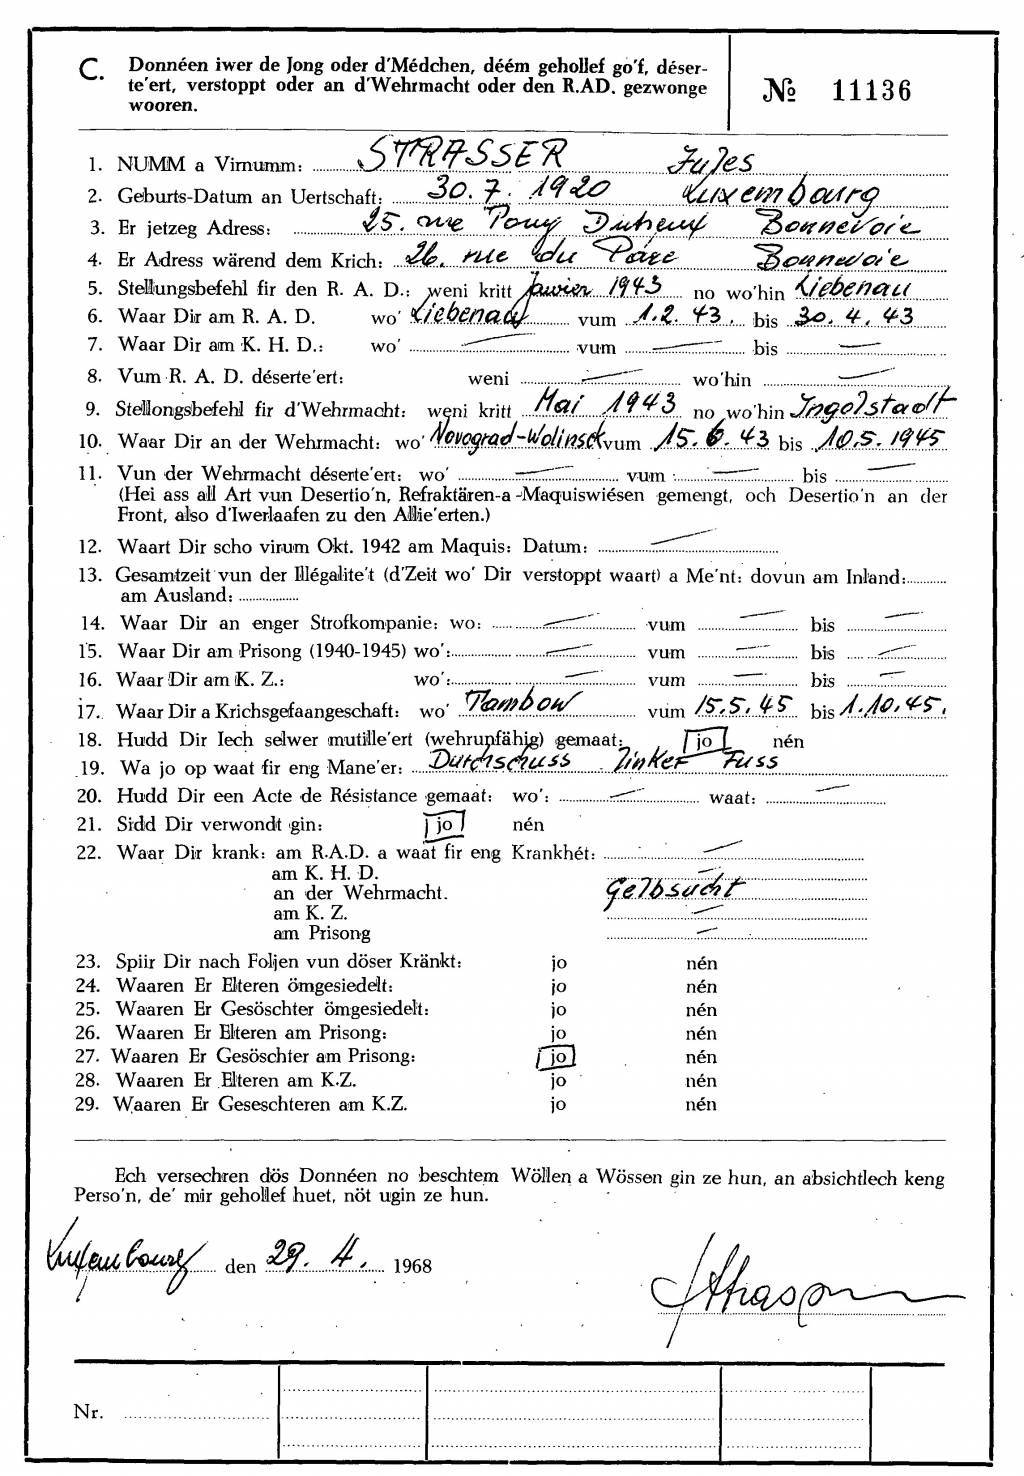 C. Donnéen iwer de Jong oder d'Médchen, déém gehollef go'f, déser-
te'ert, verstoppt oder an d'Wehrmacht oder den R.AD. gezwonge
wooren.
№ 11136
1. NUMM a Virnumm: STRASSER Jules
2. Geburts-Datum an Uertschaft: 30.7.1920 Luxembourg
3. Er jetzeg Adress: 25. rue Tony Dutreux Bonnevoie
4. Er Adress wärend dem Krich: 26. rue du Parc Bonnevoie
5. Stellungsbefehl fir den R. A. D.: weni kritt Janvier 1943 no wo'hin Liebenau
6. Waar Dir am R. A. D. wo' Liebenau vum 1.2.43. bis 30.4.43
7. Waar Dir am K. H. D.: wo' — vum — bis —
8. Vum R. A. D. déserte'ert: weni — wo'hin —
9. Stellongsbefehl fir d'Wehrmacht: weni kritt Mai 1943 no wo'hin Ingolstadt
10. Waar Dir an der Wehrmacht: wo' Novograd-Wolinsck vum 15.6.43 bis 10.5.1945
11. Vun der Wehrmacht déserte'ert: wo' — vum — bis —
(Hei ass all Art vun Desertio'n, Refraktären-a-Maquiswiésen gemengt, och Desertio'n an der
Front, also d'Iwerlaafen zu den Allie'erten.)
12. Waart Dir scho virum Okt. 1942 am Maquis: Datum: —
13. Gesamtzeit vun der Illégalite't (d'Zeit wo' Dir verstoppt waart) a Me'nt: dovun am Inland:
am Ausland:
14. Waar Dir an enger Strofkompanie: wo: — vum — bis —
15. Waar Dir am Prisong (1940-1945) wo': — vum — bis —
16. Waar Dir am K. Z.: wo': — vum — bis —
17. Waar Dir a Krichsgefaangeschaft: wo' Tambow vum 15.5.45 bis 1.10.45.
18. Hudd Dir Iech selwer mutille'ert (wehrunfähig) gemaat: jo nén
19. Wa jo op waat fir eng Mane'er: Durchschuss linker Fuss
20. Hudd Dir een Acte de Résistance gemaat: wo': — waat: —
21. Sidd Dir verwondt gin: jo nén
22. Waar Dir krank: am R.A.D. a waat fir eng Krankhét: —
am K. H. D. —
an der Wehrmacht. Gelbsucht
am K. Z. —
am Prisong —
23. Spiir Dir nach Foljen vun döser Kränkt: jo nén
24. Waaren Er Elteren ömgesiedelt: jo nén
25. Waaren Er Gesöschter ömgesiedelt: jo nén
26. Waaren Er Elteren am Prisong: jo nén
27. Waaren Er Gesöschter am Prisong: jo nén
28. Waaren Er Elteren am K.Z. jo nén
29. Waaren Er Geseschteren am K.Z. jo nén
Ech versechren dös Donnéen no beschtem Wöllen a Wössen gin ze hun, an absichtlech keng
Perso'n, de' mir gehollef huet, nöt ugin ze hun.
Luxembourg den 29. 4. 1968
Nr.